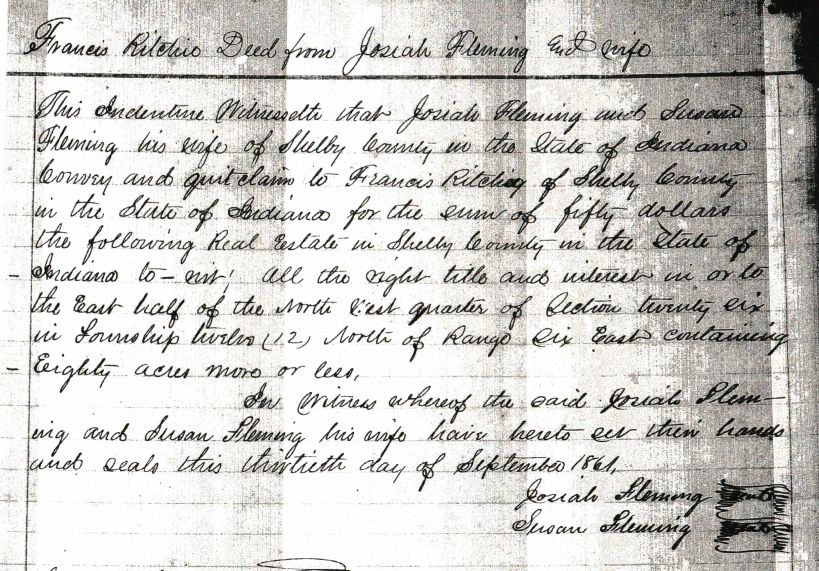 Francis Ritchie Deed from Josiah Fleming and wife
This Indenture Witnesseth that Josiah Fleming and Susan
Fleming his wife of Shelby County in the State of Indiana
Convey and quit claim to Francis Ritchey of Shelby County
in the State of Indiana for the sum of fifty dollars
the following Real Estate in Shelby County in the State of
Indiana to-wit; All the right title and interest in or to
the East half of the North quarter of Section twenty six
in Township twelve (12) North of Range Six East containing
Eighty acres more or less.
In Witness whereof the said Josiah Flem-
ing and Susan Fleming his wife have hereto set their hands
and seals this thirtieth day of September 1861.
Josiah Fleming
Susan Fleming